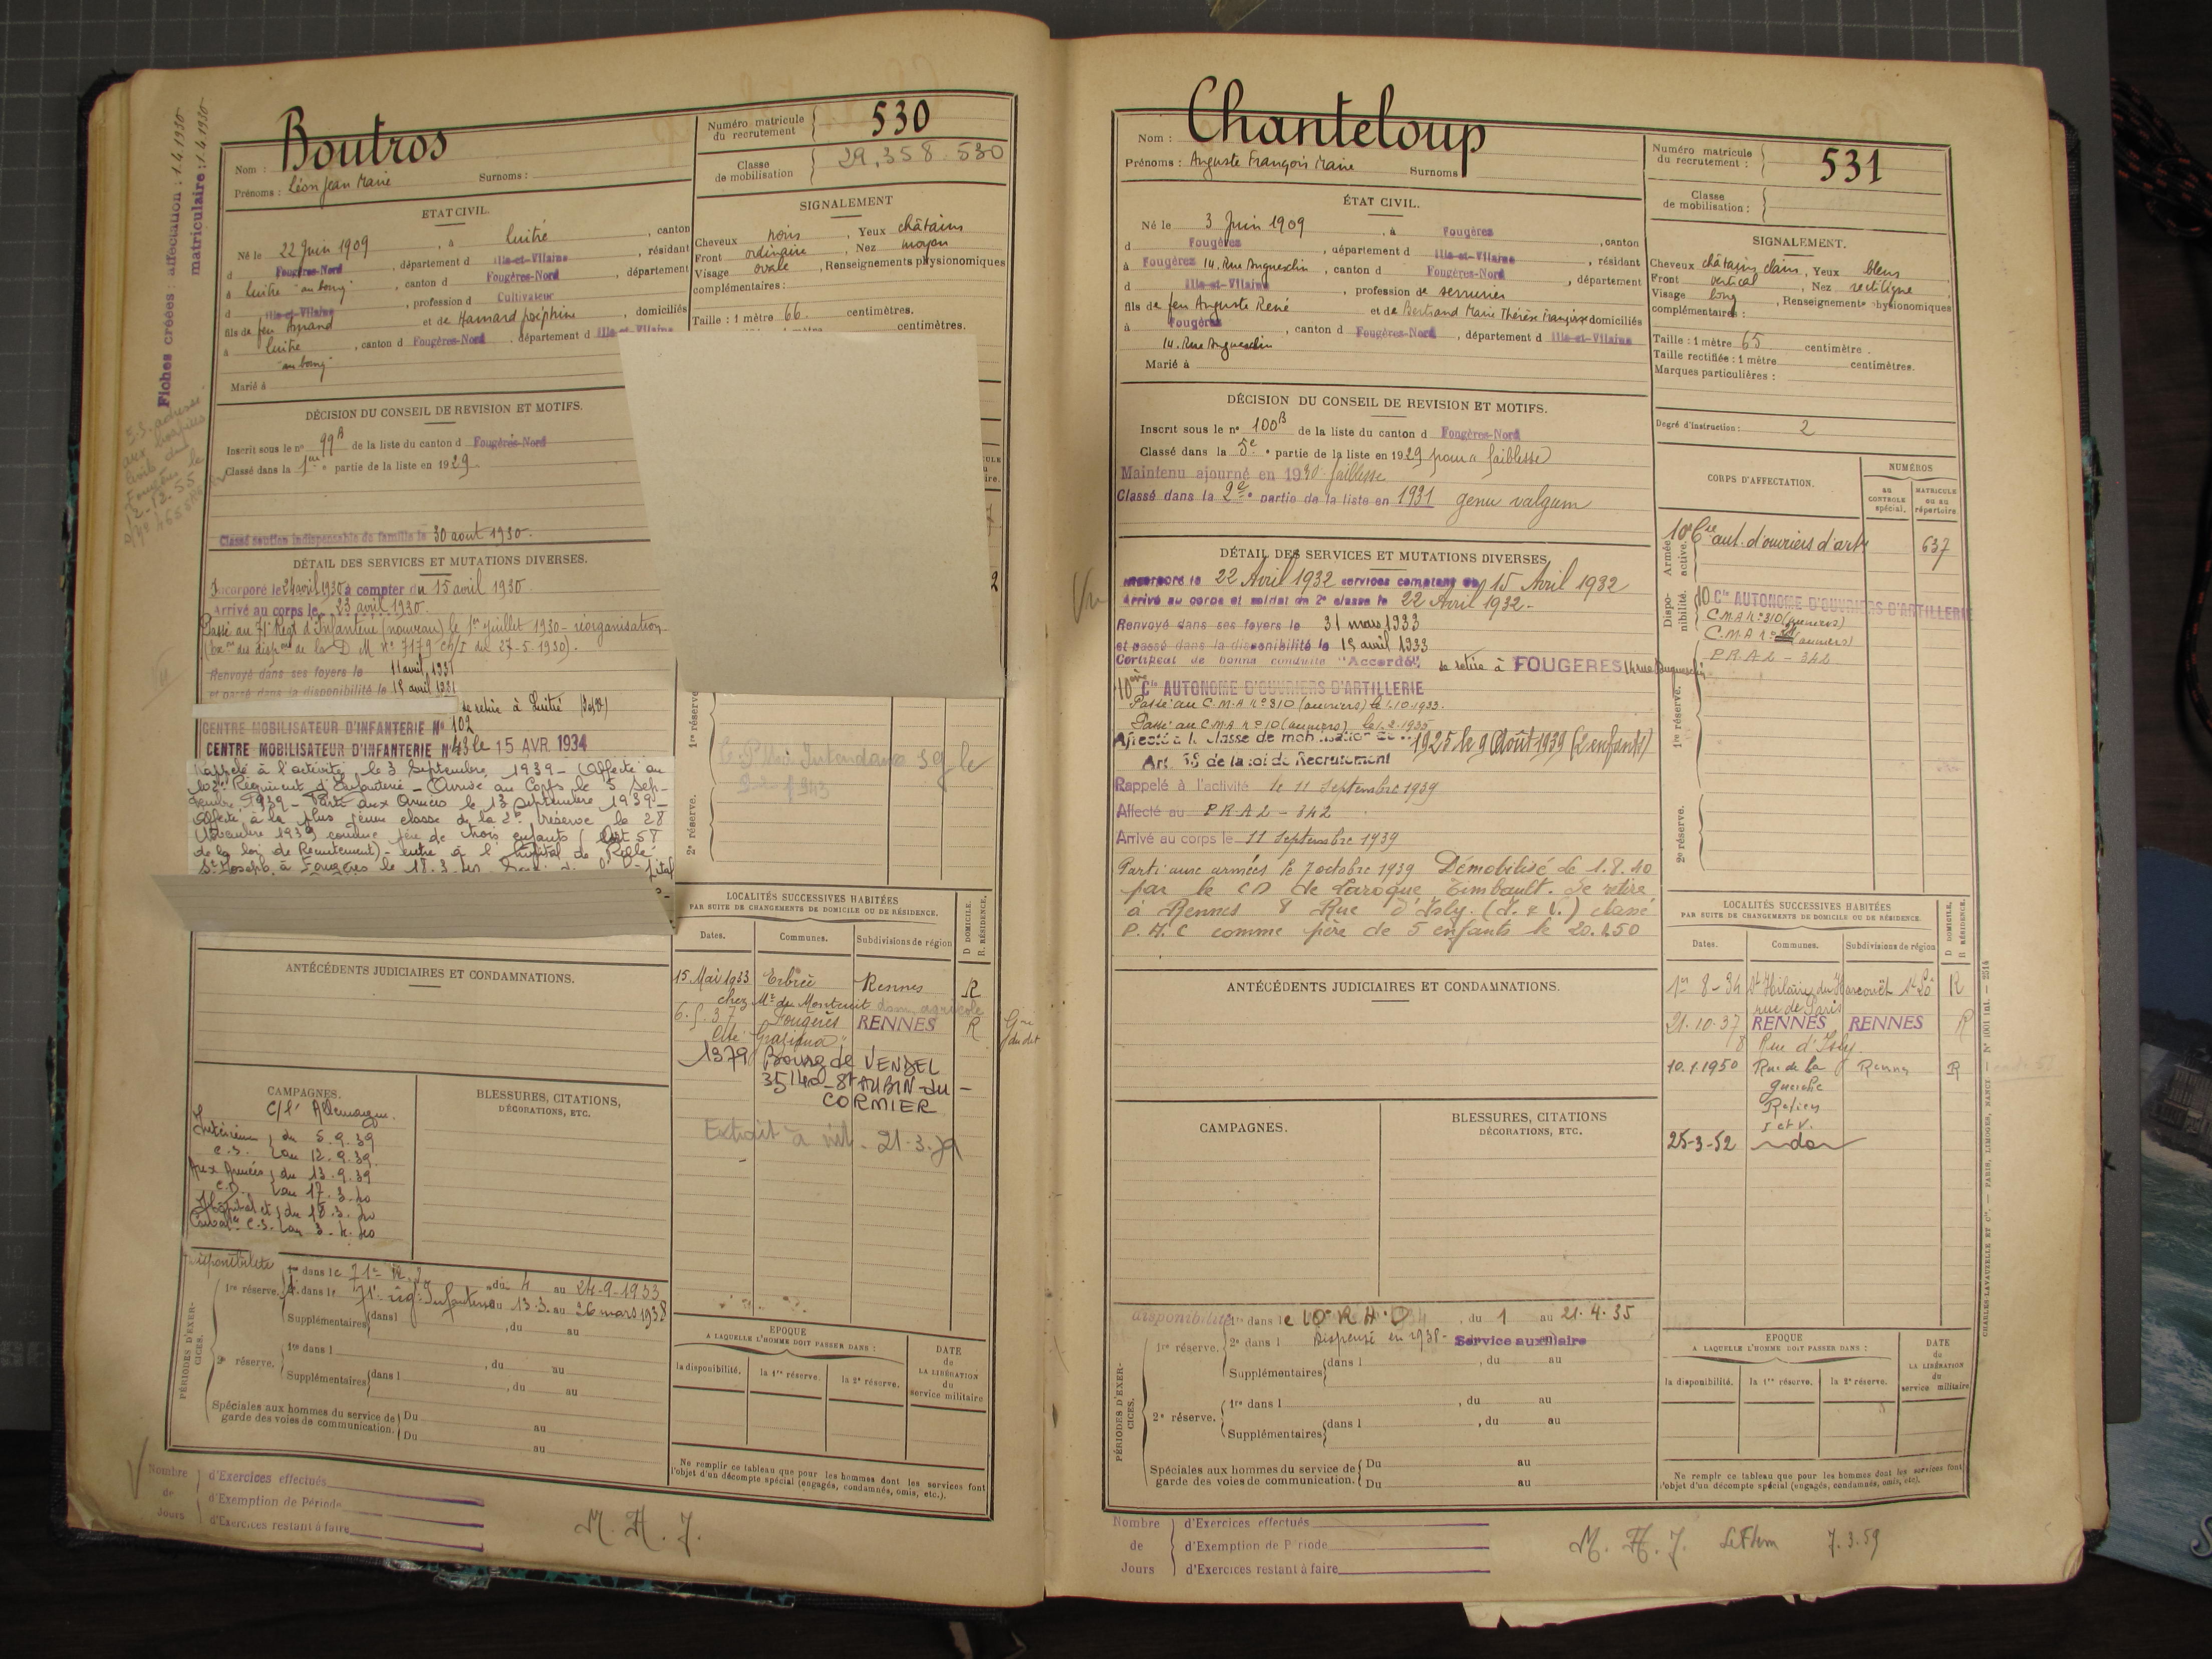 Fiches créées : affectation : 1.4.1930
matriculaire : 1.4.1930
Nom : Boutros
Prénoms : Léon Jean Marie Surnoms :
Numéro matricule du recrutement 530
Classe de mobilisation 29.358.530
ETAT CIVIL.
Né le 22 Juin 1909, à Luitré, canton
d Fougères-Nord, département d Ille-et-Vilaine, résidant
à Luitré "au bourg", canton d Fougères-Nord, département
d Ille-et-Vilaine, profession d Cultivateur
fils de feu Armand et de Hamard Joséphine, domiciliés
à Luitré, canton d Fougères-Nord, département d Ille-et-Vilaine
"au bourg"
Marié à
SIGNALEMENT
Cheveux noirs, Yeux châtains
Front ordinaire, Nez moyen
Visage ovale, Renseignements physionomiques
complémentaires :
Taille : 1 mètre 66 centimètres.
centimètres.
DÉCISION DU CONSEIL DE REVISION ET MOTIFS.
Inscrit sous le n° 99B de la liste du canton d Fougères-Nord
Classé dans la 1re partie de la liste en 1929
Classé soutien indispensable de famille le 30 aout 1930.
DÉTAIL DES SERVICES ET MUTATIONS DIVERSES.
Incorporé le 21 avril 1930 à compter du 15 avril 1930
Arrivé au corps le 23 avril 1930.
Passé au 71e Régt d'Infanterie (nouveau) le 1er Juillet 1930 - réorganisation
de la D M N° 7179 du 27-5-1930).
Renvoyé dans ses foyers le 11 avril 1931
et passé dans la disponibilité le 15 avril 1931
se retire à Luitré
CENTRE MOBILISATEUR D'INFANTERIE N° 102
CENTRE MOBILISATEUR D'INFANTERIE N° 43 le 15 AVR. 1934
Rappelé à l'activité le 3 Septembre 1939 - Affecté au
Régiment d'Infanterie - Arrivé au Corps le 5 Sep-
tembre 1939 - Parti aux Armées le 13 Septembre 1939 -
Affecté à la plus jeune classe de la 2e réserve le 28
Novembre 1939 comme père de trois enfants (Art 58
de la loi de Recrutement) - entré à l'hôpital de Rillé
St Joseph à Fougères le 18.3.40
1re réserve.
2e réserve.
ANTÉCÉDENTS JUDICIAIRES ET CONDAMNATIONS.
LOCALITÉS SUCCESSIVES HABITÉES
PAR SUITE DE CHANGEMENTS DE DOMICILE OU DE RÉSIDENCE.
Dates. Communes. Subdivisions de région D DOMICILE. R. RÉSIDENCE.
15 Mai 1933 Erbrée Rennes R
chez Mr du Monteuit dom. agricole
6.5.37 Fougères RENNES R
1979 Bourg de VENDEL
35140 - St AUBIN-du-
CORMIER
Extrait 21-3-79
CAMPAGNES.
C/l' Allemagne.
Intérieur du 5.9.39
C.S. au 12.9.39
Aux Armées du 13.9.39
C.D. au 17.3.40
Hôpital et du 18.3.40
C.S. au 3.4.40
BLESSURES, CITATIONS,
DÉCORATIONS, ETC.
PÉRIODES D'EXERCICES.
Disponibilité 1re dans le 71e R.I. du 4 au 24-9-1933
1re réserve. dans le 71e rég. Infanterie du 13.3. au 26 mars 1938
Supplémentaires dans l , du au
2e réserve. 1re dans l , du au
Supplémentaires dans l , du au
Spéciales aux hommes du service de garde des voies de communication. Du au
Du au
EPOQUE
A LAQUELLE L'HOMME DOIT PASSER DANS :
la disponibilité. la 1re réserve. la 2e réserve.
DATE de LA LIBÉRATION du service militaire
Ne remplir ce tableau que pour les hommes dont les services font
l'objet d'un décompte spécial (engagés, condamnés, omis, etc.).
Nombre de Jours
d'Exercices effectués
d'Exemption de Période
d'Exercices restant à faire
M. A. J.
Nom : Chanteloup
Prénoms : Auguste François Marie Surnoms
Numéro matricule du recrutement : 531
Classe de mobilisation :
ÉTAT CIVIL.
Né le 3 Juin 1909, à Fougères, canton
d Fougères, département d Ille-et-Vilaine, résidant
à Fougères 14. Rue Duguesclin, canton d Fougères-Nord, département
d Ille-et-Vilaine, profession de serrurier
fils de feu Auguste René et de Bertrand Marie Thérèse Françoise domiciliés
à Fougères, canton d Fougères-Nord, département d Ille-et-Vilaine
14. Rue Duguesclin
Marié à
SIGNALEMENT.
Cheveux châtains clairs, Yeux bleus
Front vertical, Nez rectiligne
Visage long, Renseignements physionomiques
complémentaires :
Taille : 1 mètre 65 centimètre.
Taille rectifiée : 1 mètre centimètres.
Marques particulières :
Degré d'instruction : 2
DÉCISION DU CONSEIL DE REVISION ET MOTIFS.
Inscrit sous le n° 100B de la liste du canton d Fougères-Nord
Classé dans la 5e partie de la liste en 1929 pour faiblesse
Maintenu ajourné en 1930 faiblesse
Classé dans la 2e partie de la liste en 1931 genu valgum
CORPS D'AFFECTATION. NUMÉROS
au CONTROLE spécial. MATRICULE ou au répertoire.
Armée active. 10e Cie aut. d'ouvriers d'art. 637
Disponibilité. 10 Cie AUTONOME D'OUVRIERS D'ARTILLERIE
C.M.A n° 310 (ouvriers)
C.M.A n° (ouvriers)
P.R.A.2 - 342
1re réserve.
2e réserve.
DÉTAIL DES SERVICES ET MUTATIONS DIVERSES
Incorporé le 22 Avril 1932 services comptant du 15 Avril 1932
Arrivé au corps et soldat de 2e classe le 22 Avril 1932 -
Renvoyé dans ses foyers le 31 mars 1933
et passé dans la disponibilité le 15 avril 1933
Certificat de bonne conduite "Accordé", se retire à FOUGERES 14 rue Duguesclin
10ème Cie AUTONOME D'OUVRIERS D'ARTILLERIE
Passé au C.M.A n° 310 (ouvriers) le 1.10.1933.
Passé au C.M.A n° 10 (ouvriers) le 1.2.1935
Affecté à la classe de mobilisation de 1925 le 9 Août 1939 (2 enfants)
Art. 58 de la loi de Recrutement
Rappelé à l'activité le 11 Septembre 1939
Affecté au P.R.A.2 - 342
Arrivé au corps le 11 Septembre 1939
Parti aux armées le 7 octobre 1939 Démobilisé le 1.8.40
par le CD de Laroque Timbault. Se retire
à Rennes 8 Rue d'Isly. (I. & V.) classé
P.A.C comme père de 5 enfants le 20.1.50
ANTÉCÉDENTS JUDICIAIRES ET CONDAMNATIONS.
LOCALITÉS SUCCESSIVES HABITÉES
PAR SUITE DE CHANGEMENTS DE DOMICILE OU DE RÉSIDENCE.
Dates. Communes. Subdivisions de région D DOMICILE. R RÉSIDENCE.
1er 8-34 St Hilaire du Harcouët St Lô R
rue de Paris
21.10.37 RENNES RENNES R
8 Rue d'Isly.
10.1.1950 Rue de la Rennes R
Guerche
Retiers
I et V.
25-3-52 do
CAMPAGNES.
BLESSURES, CITATIONS
DÉCORATIONS, ETC.
PÉRIODES D'EXERCICES.
disponibilité 1re dans le 10e R.A.D , du 1 au 21.4.35
1re réserve. 2e dans l Dispensé en 1938 - Service auxiliaire
Supplémentaires dans l , du au
2e réserve. 1re dans l , du au
Supplémentaires dans l , du au
Spéciales aux hommes du service de garde des voies de communication. Du au
Du au
EPOQUE
A LAQUELLE L'HOMME DOIT PASSER DANS :
la disponibilité. la 1re réserve. la 2e réserve.
DATE du LA LIBÉRATION du service militaire
Ne remplir ce tableau que pour les hommes dont les services font
l'objet d'un décompte spécial (engagés, condamnés, omis, etc).
CHARLES-LAVAUZELLE ET Cie. — PARIS, LIMOGES, NANCY
Nombre de Jours
d'Exercices effectués
d'Exemption de Période
d'Exercices restant à faire
M. A. J. 7.3.59